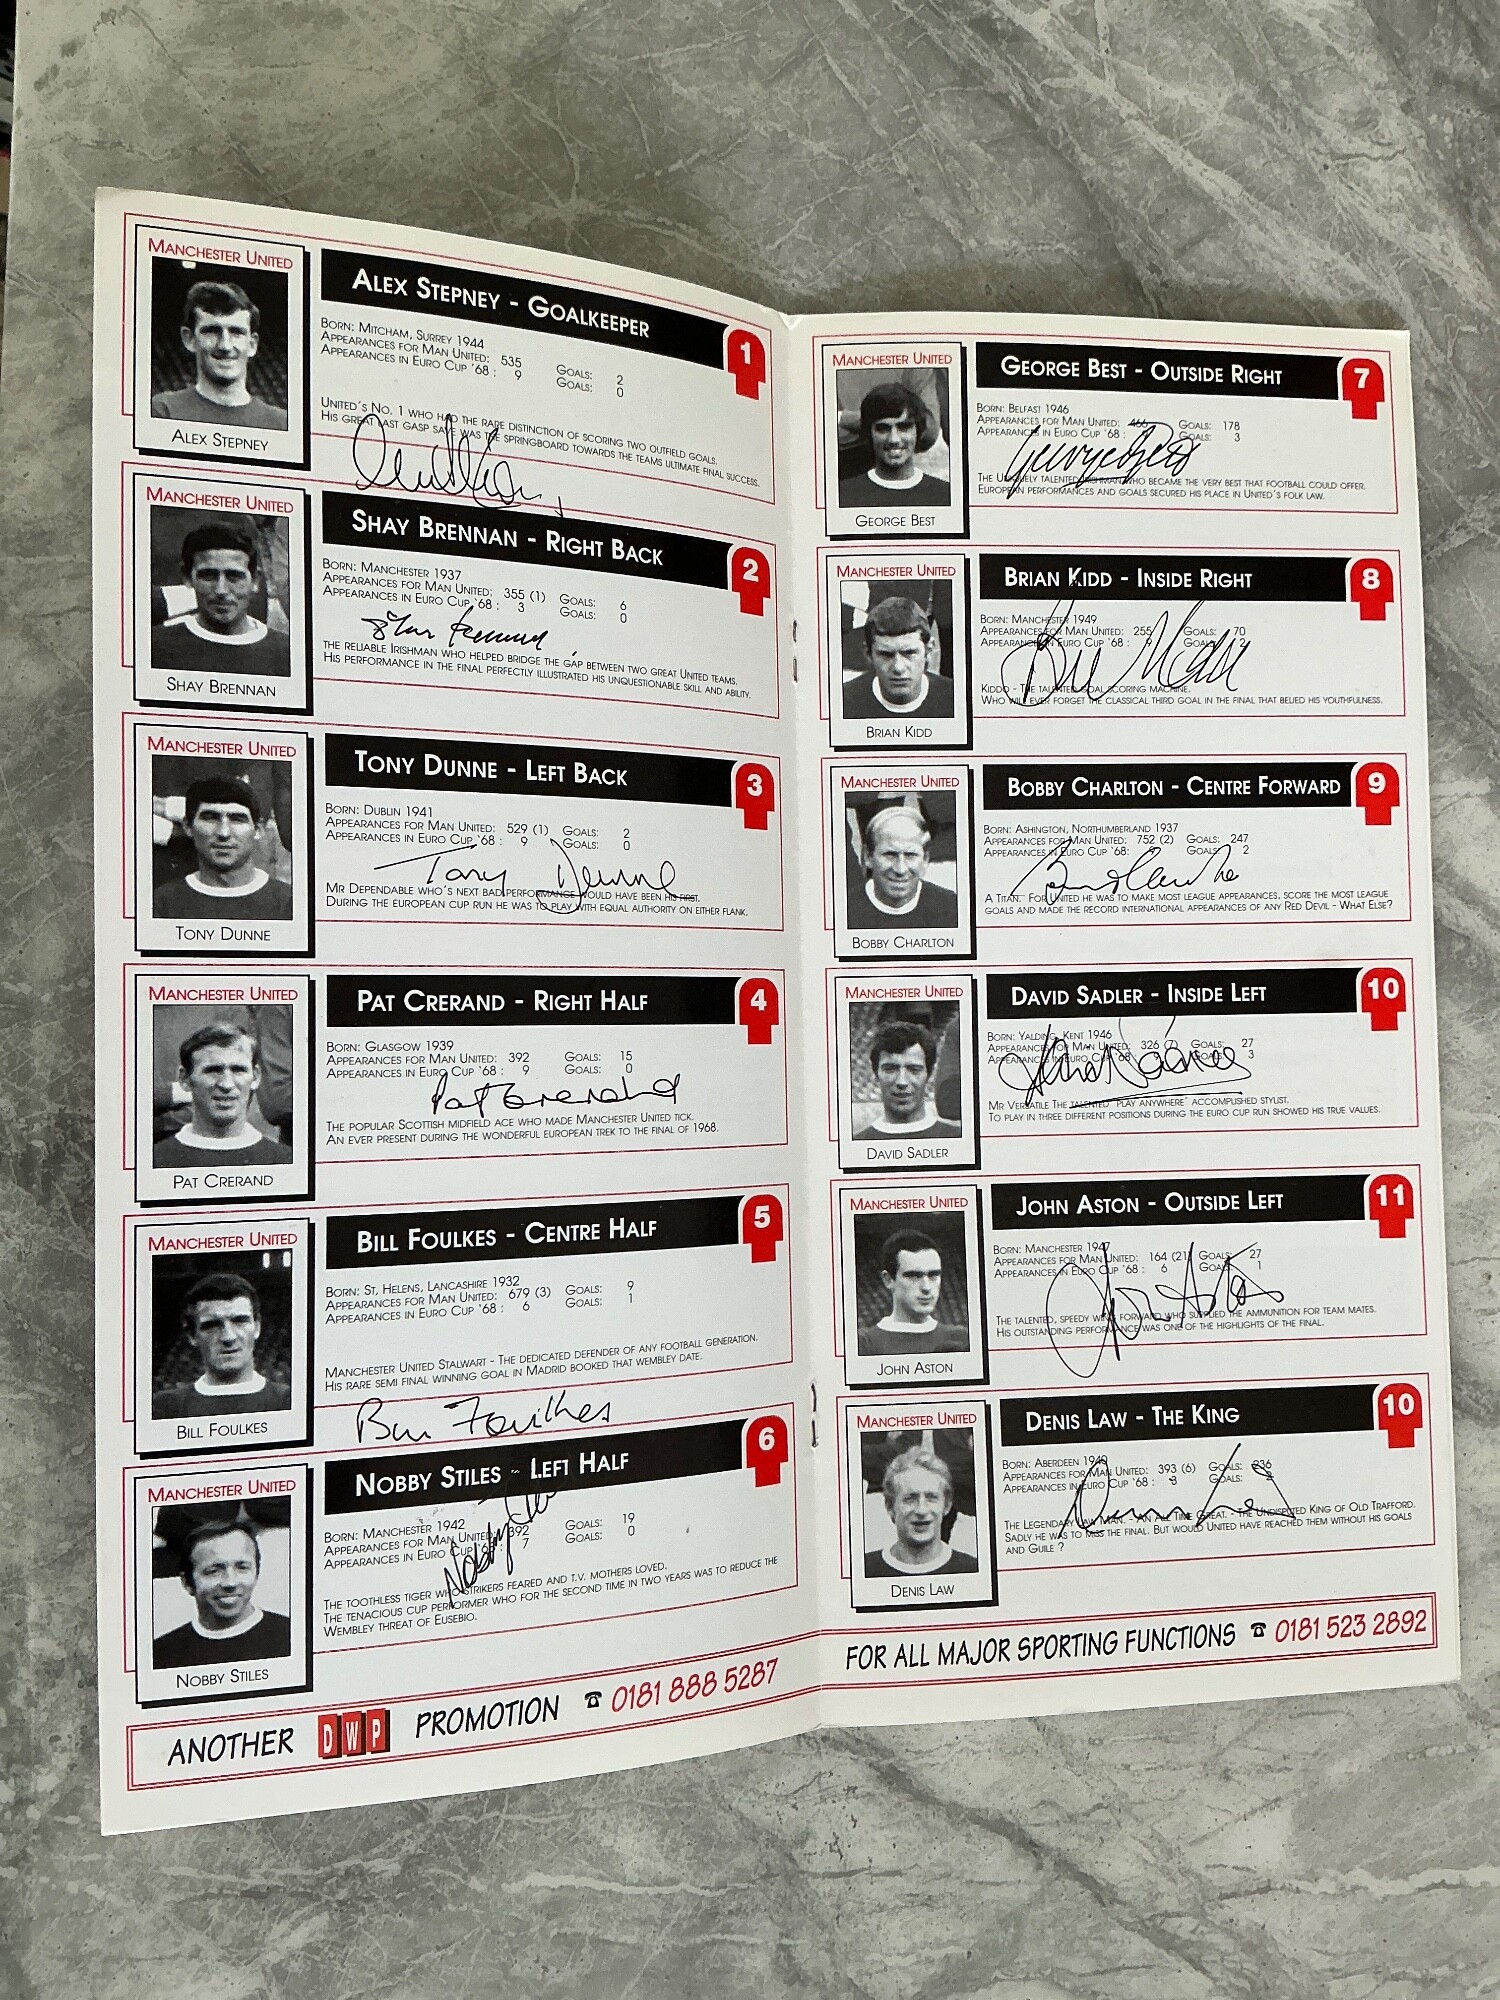 MANCHESTER UNITED
ALEX STEPNEY
ALEX STEPNEY - GOALKEEPER
1
BORN: MITCHAM, SURREY 1944
APPEARANCES FOR MAN UNITED: 535 GOALS: 2
APPEARANCES IN EURO CUP '68: 9 GOALS: 0
UNITED'S NO. 1 WHO HAD THE RARE DISTINCTION OF SCORING TWO OUTFIELD GOALS.
HIS GREAT LAST GASP SAVE WAS THE SPRINGBOARD TOWARDS THE TEAMS ULTIMATE FINAL SUCCESS.
MANCHESTER UNITED
SHAY BRENNAN
SHAY BRENNAN - RIGHT BACK
2
BORN: MANCHESTER 1937
APPEARANCES FOR MAN UNITED: 355 (1) GOALS: 6
APPEARANCES IN EURO CUP '68: 3 GOALS: 0
Shay Brennan
THE RELIABLE IRISHMAN WHO HELPED BRIDGE THE GAP BETWEEN TWO GREAT UNITED TEAMS.
HIS PERFORMANCE IN THE FINAL PERFECTLY ILLUSTRATED HIS UNQUESTIONABLE SKILL AND ABILITY.
MANCHESTER UNITED
TONY DUNNE
TONY DUNNE - LEFT BACK
3
BORN: DUBLIN 1941
APPEARANCES FOR MAN UNITED: 529 (1) GOALS: 2
APPEARANCES IN EURO CUP '68: 9 GOALS: 0
Tony Dunne
MR DEPENDABLE WHO'S NEXT BAD PERFORMANCE WOULD HAVE BEEN HIS FIRST.
DURING THE EUROPEAN CUP RUN HE WAS TO PLAY WITH EQUAL AUTHORITY ON EITHER FLANK.
MANCHESTER UNITED
PAT CRERAND
PAT CRERAND - RIGHT HALF
4
BORN: GLASGOW 1939
APPEARANCES FOR MAN UNITED: 392 GOALS: 15
APPEARANCES IN EURO CUP '68: 9 GOALS: 0
Pat Crerand
THE POPULAR SCOTTISH MIDFIELD ACE WHO MADE MANCHESTER UNITED TICK.
AN EVER PRESENT DURING THE WONDERFUL EUROPEAN TREK TO THE FINAL OF 1968.
MANCHESTER UNITED
BILL FOULKES
BILL FOULKES - CENTRE HALF
5
BORN: ST, HELENS, LANCASHIRE 1932
APPEARANCES FOR MAN UNITED: 679 (3) GOALS: 9
APPEARANCES IN EURO CUP '68: 6 GOALS: 1
MANCHESTER UNITED STALWART - THE DEDICATED DEFENDER OF ANY FOOTBALL GENERATION.
HIS RARE SEMI FINAL WINNING GOAL IN MADRID BOOKED THAT WEMBLEY DATE.
Bill Foulkes
MANCHESTER UNITED
NOBBY STILES
NOBBY STILES - LEFT HALF
6
BORN: MANCHESTER 1942
APPEARANCES FOR MAN UNITED: 392 GOALS: 19
APPEARANCES IN EURO CUP '68: 7 GOALS: 0
Nobby Stiles
THE TOOTHLESS TIGER WHO STRIKERS FEARED AND T.V. MOTHERS LOVED.
THE TENACIOUS CUP PERFORMER WHO FOR THE SECOND TIME IN TWO YEARS WAS TO REDUCE THE
WEMBLEY THREAT OF EUSEBIO.
ANOTHER DWP PROMOTION ☎ 0181 888 5287
MANCHESTER UNITED
GEORGE BEST
GEORGE BEST - OUTSIDE RIGHT
7
BORN: BELFAST 1946
APPEARANCES FOR MAN UNITED: 466 GOALS: 178
APPEARANCES IN EURO CUP '68: GOALS: 3
George Best
THE UNIQUELY TALENTED IRISHMAN WHO BECAME THE VERY BEST THAT FOOTBALL COULD OFFER.
EUROPEAN PERFORMANCES AND GOALS SECURED HIS PLACE IN UNITED'S FOLK LAW.
MANCHESTER UNITED
BRIAN KIDD
BRIAN KIDD - INSIDE RIGHT
8
BORN: MANCHESTER 1949
APPEARANCES FOR MAN UNITED: 255 GOALS: 70
APPEARANCES IN EURO CUP '68: 9 GOALS: 2
KIDDO - THE TALENTED GOAL SCORING MACHINE.
WHO WILL EVER FORGET THE CLASSICAL THIRD GOAL IN THE FINAL THAT BELIED HIS YOUTHFULNESS.
MANCHESTER UNITED
BOBBY CHARLTON
BOBBY CHARLTON - CENTRE FORWARD
9
BORN: ASHINGTON, NORTHUMBERLAND 1937
APPEARANCES FOR MAN UNITED: 752 (2) GOALS: 247
APPEARANCES IN EURO CUP '68: GOALS: 2
A TITAN. FOR UNITED HE WAS TO MAKE MOST LEAGUE APPEARANCES, SCORE THE MOST LEAGUE
GOALS AND MADE THE RECORD INTERNATIONAL APPEARANCES OF ANY RED DEVIL - WHAT ELSE?
MANCHESTER UNITED
DAVID SADLER
DAVID SADLER - INSIDE LEFT
10
BORN: YALDING, KENT 1946
APPEARANCES FOR MAN UNITED: 326 (7) GOALS: 27
APPEARANCES IN EURO CUP '68: GOALS: 3
MR VERSATILE THE TALENTED 'PLAY ANYWHERE' ACCOMPLISHED STYLIST.
TO PLAY IN THREE DIFFERENT POSITIONS DURING THE EURO CUP RUN SHOWED HIS TRUE VALUES.
MANCHESTER UNITED
JOHN ASTON
JOHN ASTON - OUTSIDE LEFT
11
BORN: MANCHESTER 1947
APPEARANCES FOR MAN UNITED: 164 (21) GOALS: 27
APPEARANCES IN EURO CUP '68: 6 GOALS: 1
John Aston
THE TALENTED, SPEEDY WING FORWARD WHO SUPPLIED THE AMMUNITION FOR TEAM MATES.
HIS OUTSTANDING PERFORMANCE WAS ONE OF THE HIGHLIGHTS OF THE FINAL.
MANCHESTER UNITED
DENIS LAW
DENIS LAW - THE KING
10
BORN: ABERDEEN 1940
APPEARANCES FOR MAN UNITED: 393 (6) GOALS: 236
APPEARANCES IN EURO CUP '68: 3 GOALS: 2
Denis Law
THE LEGENDARY LAW MAN. - AN ALL TIME GREAT. - THE UNDISPUTED KING OF OLD TRAFFORD.
SADLY HE WAS TO MISS THE FINAL. BUT WOULD UNITED HAVE REACHED THEM WITHOUT HIS GOALS
AND GUILE ?
FOR ALL MAJOR SPORTING FUNCTIONS ☎ 0181 523 2892